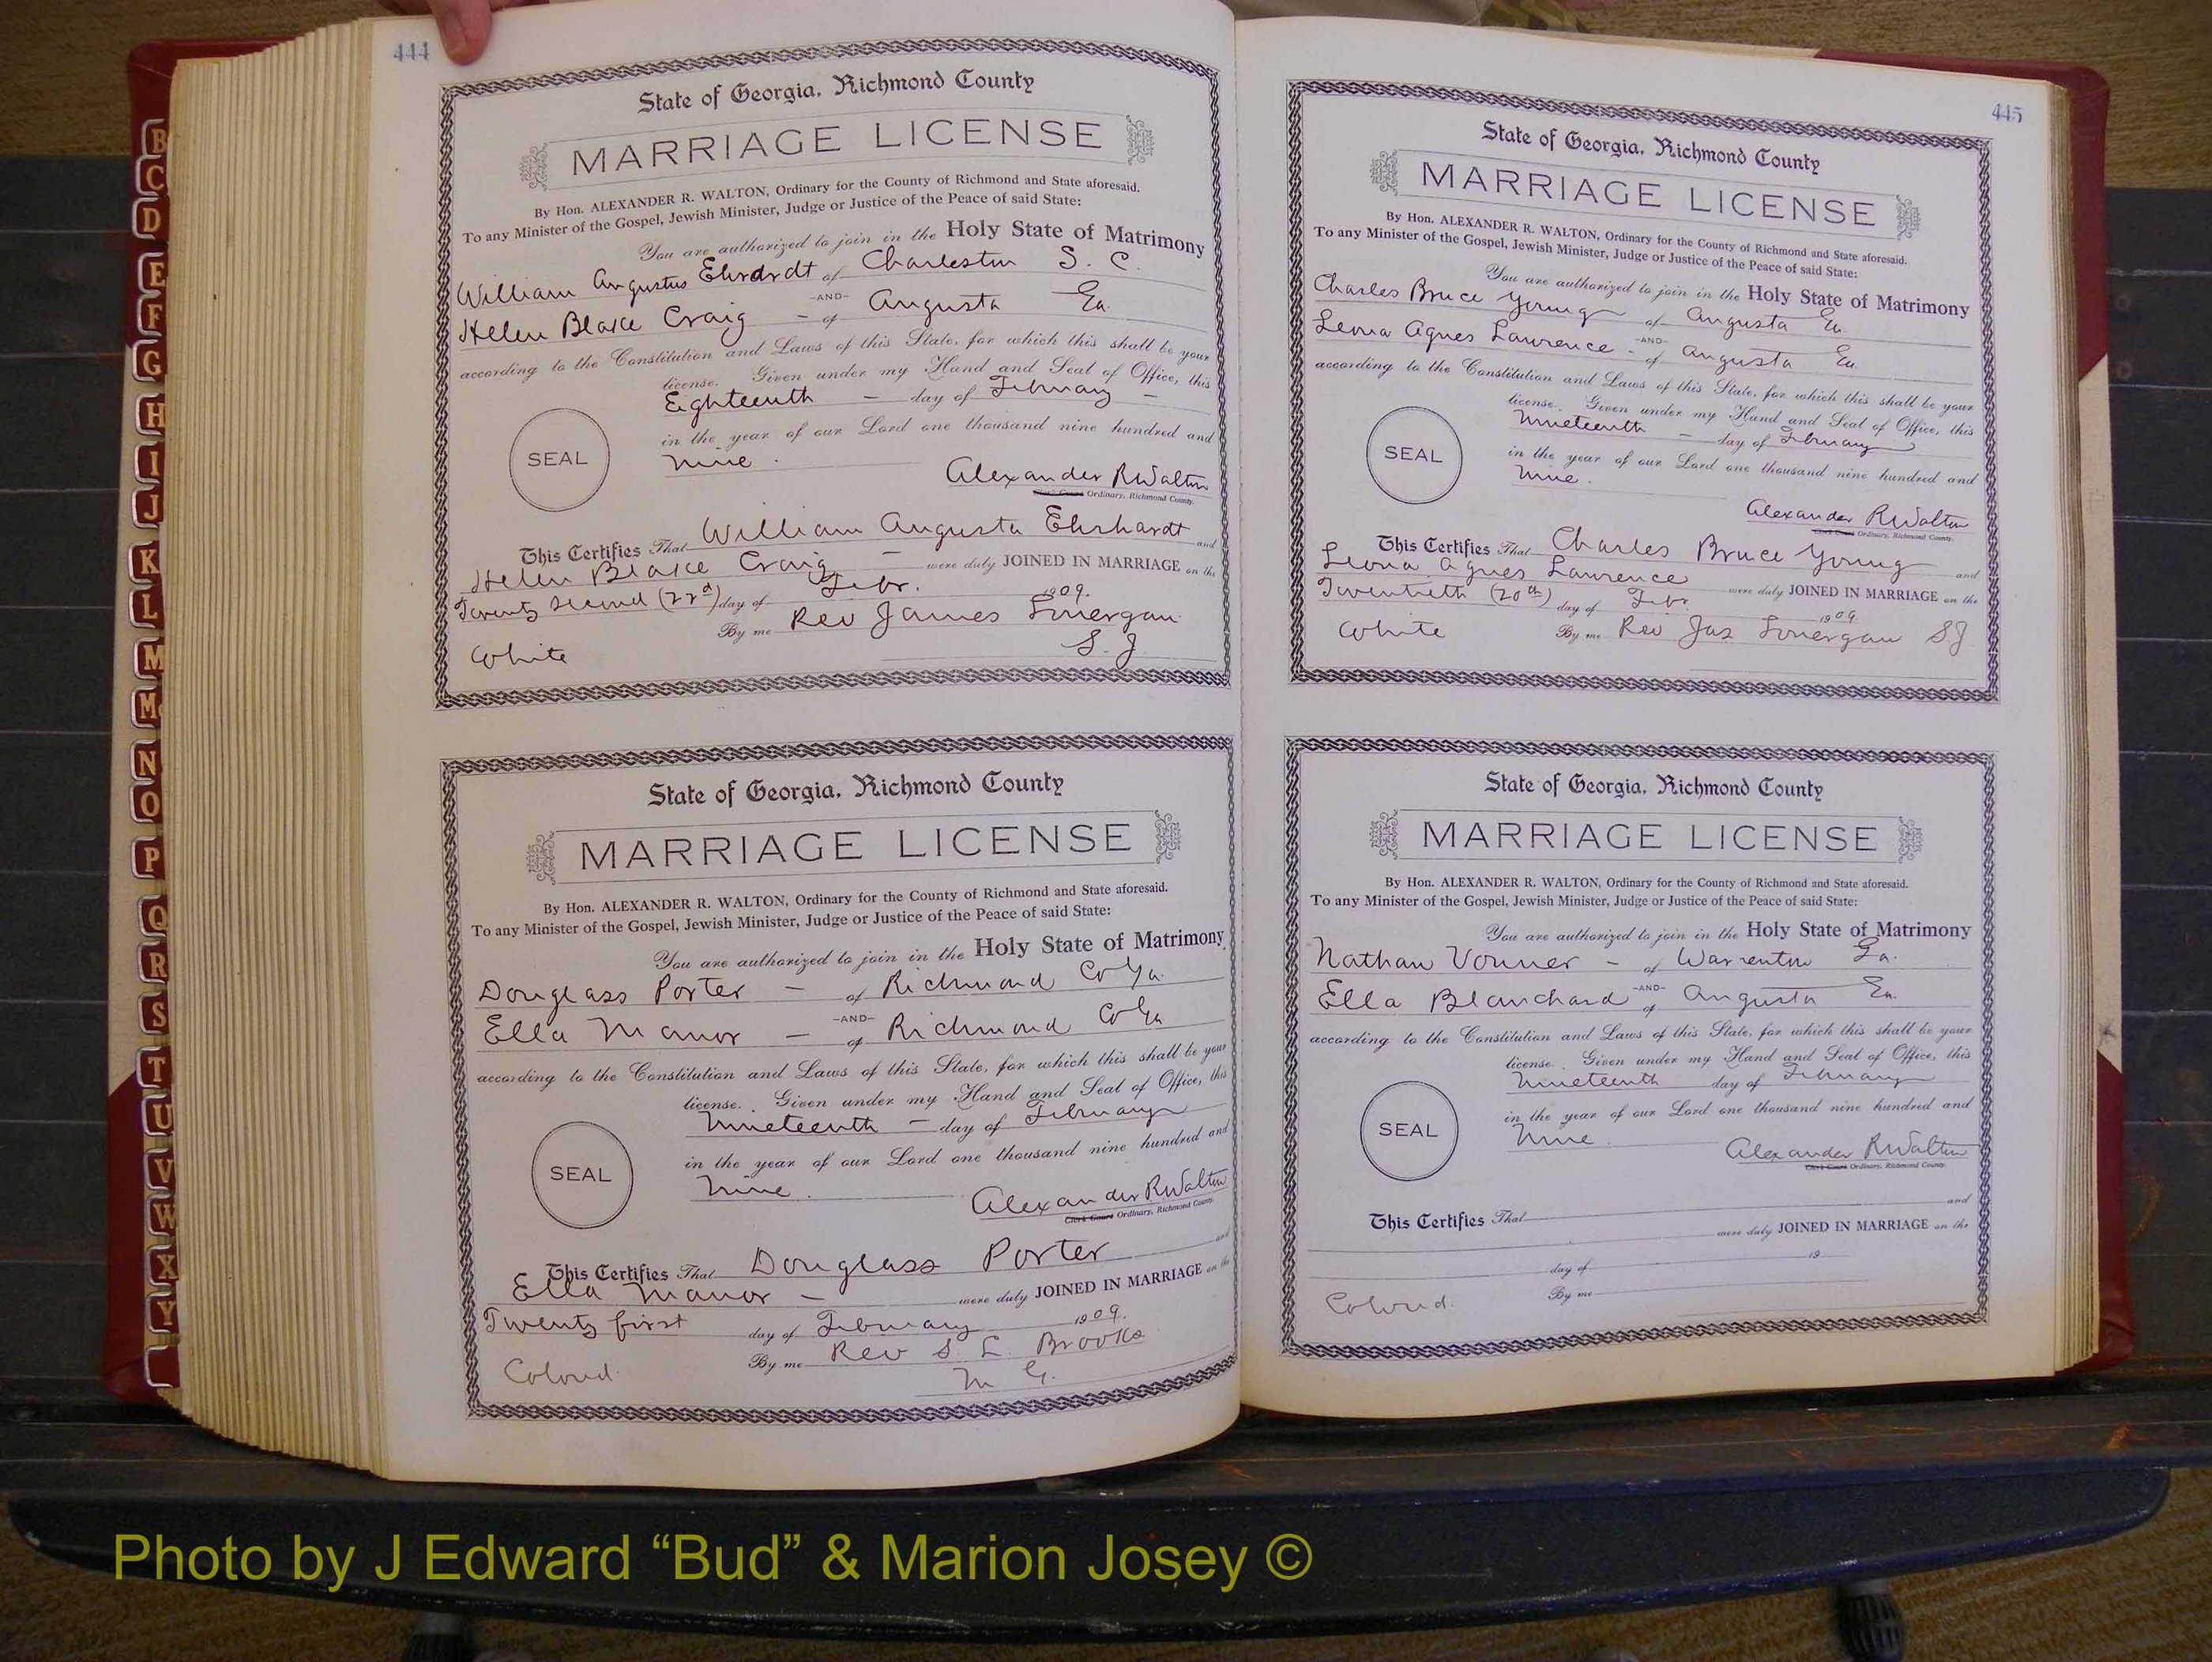 444
State of Georgia, Richmond County
MARRIAGE LICENSE
By Hon. ALEXANDER R. WALTON, Ordinary for the County of Richmond and State aforesaid.
To any Minister of the Gospel, Jewish Minister, Judge or Justice of the Peace of said State:
You are authorized to join in the Holy State of Matrimony
William Augustus Ehrdrdt of Charleston S. C.
-AND-
Helen Blake Craig - of Augusta Ga.
according to the Constitution and Laws of this State, for which this shall be your
license. Given under my Hand and Seal of Office, this
Eighteenth - day of February -
in the year of our Lord one thousand nine hundred and
SEAL
nine.
Alexander R Walton
Clerk Court Ordinary, Richmond County.
This Certifies That William Augusta Ehrhardt and
Helen Blake Craig - were duly JOINED IN MARRIAGE on the
Twenty Second (22d) day of Febr. 1909.
By me Rev James Lonergan
S. J.
White
State of Georgia, Richmond County
MARRIAGE LICENSE
By Hon. ALEXANDER R. WALTON, Ordinary for the County of Richmond and State aforesaid.
To any Minister of the Gospel, Jewish Minister, Judge or Justice of the Peace of said State:
You are authorized to join in the Holy State of Matrimony
Douglass Porter - of Richmond Co Ga.
-AND-
Ella Manor - of Richmond Co Ga
according to the Constitution and Laws of this State, for which this shall be your
license. Given under my Hand and Seal of Office, this
Nineteenth - day of February
in the year of our Lord one thousand nine hundred and
SEAL
nine.
Alexander R Walton
Clerk Court Ordinary, Richmond County.
This Certifies That Douglass Porter and
Ella Manor - were duly JOINED IN MARRIAGE on the
Twenty first day of February 1909.
By me Rev S. L. Brooks
M G.
Colored.
445
State of Georgia, Richmond County
MARRIAGE LICENSE
By Hon. ALEXANDER R. WALTON, Ordinary for the County of Richmond and State aforesaid.
To any Minister of the Gospel, Jewish Minister, Judge or Justice of the Peace of said State:
You are authorized to join in the Holy State of Matrimony
Charles Bruce Young of Augusta Ga.
-AND-
Leona Agnes Lawrence - of Augusta Ga.
according to the Constitution and Laws of this State, for which this shall be your
license. Given under my Hand and Seal of Office, this
Nineteenth - day of February
in the year of our Lord one thousand nine hundred and
SEAL
Nine.
Alexander R Walton
Clerk Court Ordinary, Richmond County.
This Certifies That Charles Bruce Young and
Leona Agnes Lawrence were duly JOINED IN MARRIAGE on the
Twentieth (20th) day of Febr. 1909.
White By me Rev Jas Lonergan SJ
State of Georgia, Richmond County
MARRIAGE LICENSE
By Hon. ALEXANDER R. WALTON, Ordinary for the County of Richmond and State aforesaid.
To any Minister of the Gospel, Jewish Minister, Judge or Justice of the Peace of said State:
You are authorized to join in the Holy State of Matrimony
Nathan Vonner - of Warrenton Ga.
-AND-
Ella Blanchard of Augusta Ga.
according to the Constitution and Laws of this State, for which this shall be your
license. Given under my Hand and Seal of Office, this
Nineteenth day of February
in the year of our Lord one thousand nine hundred and
SEAL
Nine.
Alexander R Walton
Clerk Court Ordinary, Richmond County.
This Certifies That and
were duly JOINED IN MARRIAGE on the
day of 19
By me
Colored.
B
C
D
E
F
G
H
I
J
K
L
M
Mc
N
O
P
Q
R
S
T
U
V
W
X
Y
Photo by J Edward “Bud” & Marion Josey ©